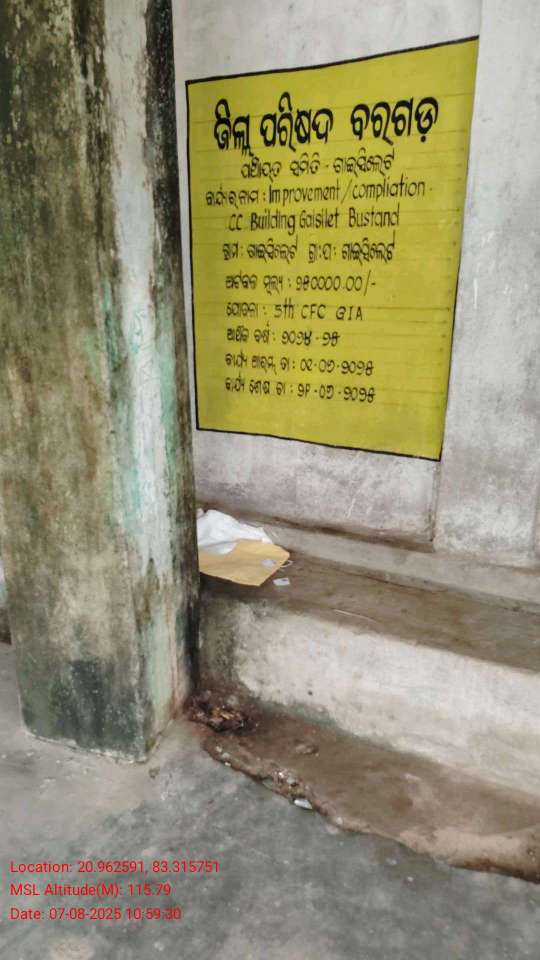 ଜିଲ୍ଲା ପରିଷଦ ବରଗଡ଼
ପଞ୍ଚାୟତ ସମିତି - ଗାଇସିଲେଟ
କାର୍ଯ୍ୟର ନାମ : Improvement/compliation
CC Building Gaisilet Bustand
ଗ୍ରାମ : ଗାଇସିଲେଟ ଗ୍ରା.ପ : ଗାଇସିଲେଟ
ଅଟକଳ ମୂଲ୍ୟ : ୨୫୦୦୦୦.୦୦/-
ଯୋଜନା : 5th CFC GIA
ଆର୍ଥିକ ବର୍ଷ : ୨୦୨୪ - ୨୫
କାର୍ଯ୍ୟ ଆରମ୍ଭ ତା : ୦୧-୦୬-୨୦୨୫
କାର୍ଯ୍ୟ ଶେଷ ତା : ୨୮-୦୬-୨୦୨୫
Location: 20.962591, 83.315751
MSL Altitude(M): 115.79
Date: 07-08-2025 10:59:30